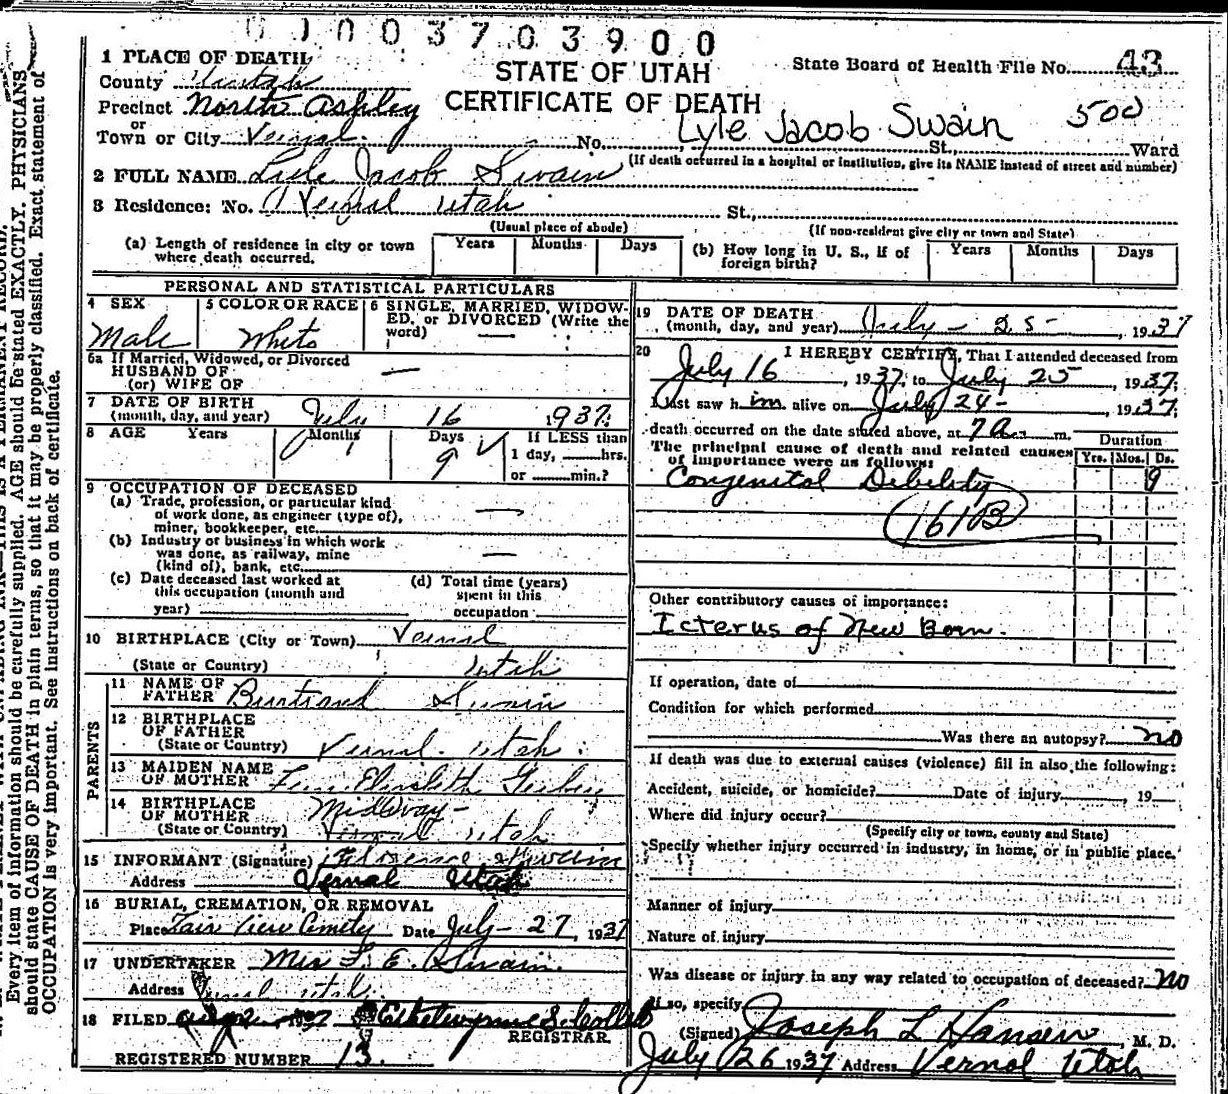 0 1 0 0 3 7 0 3 9 0 0
1 PLACE OF DEATH
STATE OF UTAH
CERTIFICATE OF DEATH
State Board of Health File No. 43
County Uintah
Precinct North Ashley
or
Town or City Vernal. No. St., Ward
Lyle Jacob Swain 500
(If death occurred in a hospital or institution, give its NAME instead of street and number)
2 FULL NAME Lyle Jacob Swain
3 Residence: No. Vernal Utah St.,
(Usual place of abode) (If non-resident give city or town and State)
(a) Length of residence in city or town where death occurred. Years Months Days
(b) How long in U. S., if of foreign birth? Years Months Days
PERSONAL AND STATISTICAL PARTICULARS
4 SEX Male
5 COLOR OR RACE White
6 SINGLE, MARRIED, WIDOWED, or DIVORCED (Write the word) —
6a If Married, Widowed, or Divorced
HUSBAND OF —
(or) WIFE OF
7 DATE OF BIRTH
(month, day, and year) July 16 1937
8 AGE Years Months Days 9 ✓
If LESS than
1 day, hrs.
or min.?
9 OCCUPATION OF DECEASED
(a) Trade, profession, or particular kind
of work done, as engineer (type of), —
miner, bookkeeper, etc.
(b) Industry or business in which work
was done, as railway, mine —
(kind of), bank, etc.
(c) Date deceased last worked at
this occupation (month and
year)
(d) Total time (years)
spent in this
occupation
10 BIRTHPLACE (City or Town) Vernal
(State or Country) Utah
PARENTS
11 NAME OF
FATHER Burtrand Swain
12 BIRTHPLACE
OF FATHER
(State or Country) Vernal. Utah
13 MAIDEN NAME
OF MOTHER Elizabeth
14 BIRTHPLACE
OF MOTHER Midway-
(State or Country) Vernal Utah
15 INFORMANT (Signature) Florence Swain
Address Vernal Utah
16 BURIAL, CREMATION, OR REMOVAL
Place Fair View Cemetry Date July - 27, 1937
17 UNDERTAKER Mrs L. E. Swain.
Address Vernal Utah.
18 FILED
REGISTRAR.
REGISTERED NUMBER 13.
19 DATE OF DEATH
(month, day, and year) July - 25 - , 1937
20 I HEREBY CERTIFY, That I attended deceased from
July 16, 1937, to July 25, 1937;
I last saw h im alive on July 24-, 1937;
death occurred on the date stated above, at 7 a. m.
The principal cause of death and related causes
of importance were as follows: Duration
Yrs. Mos. Ds.
Congenital Debility 9
161B
Other contributory causes of importance:
Icterus of New Born.
If operation, date of
Condition for which performed
Was there an autopsy? no
If death was due to external causes (violence) fill in also the following:
Accident, suicide, or homicide? Date of injury , 19
Where did injury occur?
(Specify city or town, county and State)
Specify whether injury occurred in industry, in home, or in public place.
Manner of injury
Nature of injury
Was disease or injury in any way related to occupation of deceased? no
If so, specify
(Signed) Joseph L Hansen, M. D.
July 26 1937 Address Vernal Utah
Every item of information should be carefully supplied. AGE should be stated EXACTLY. PHYSICIANS
should state CAUSE OF DEATH in plain terms, so that it may be properly classified. Exact statement of
OCCUPATION is very important. See instructions on back of certificate.